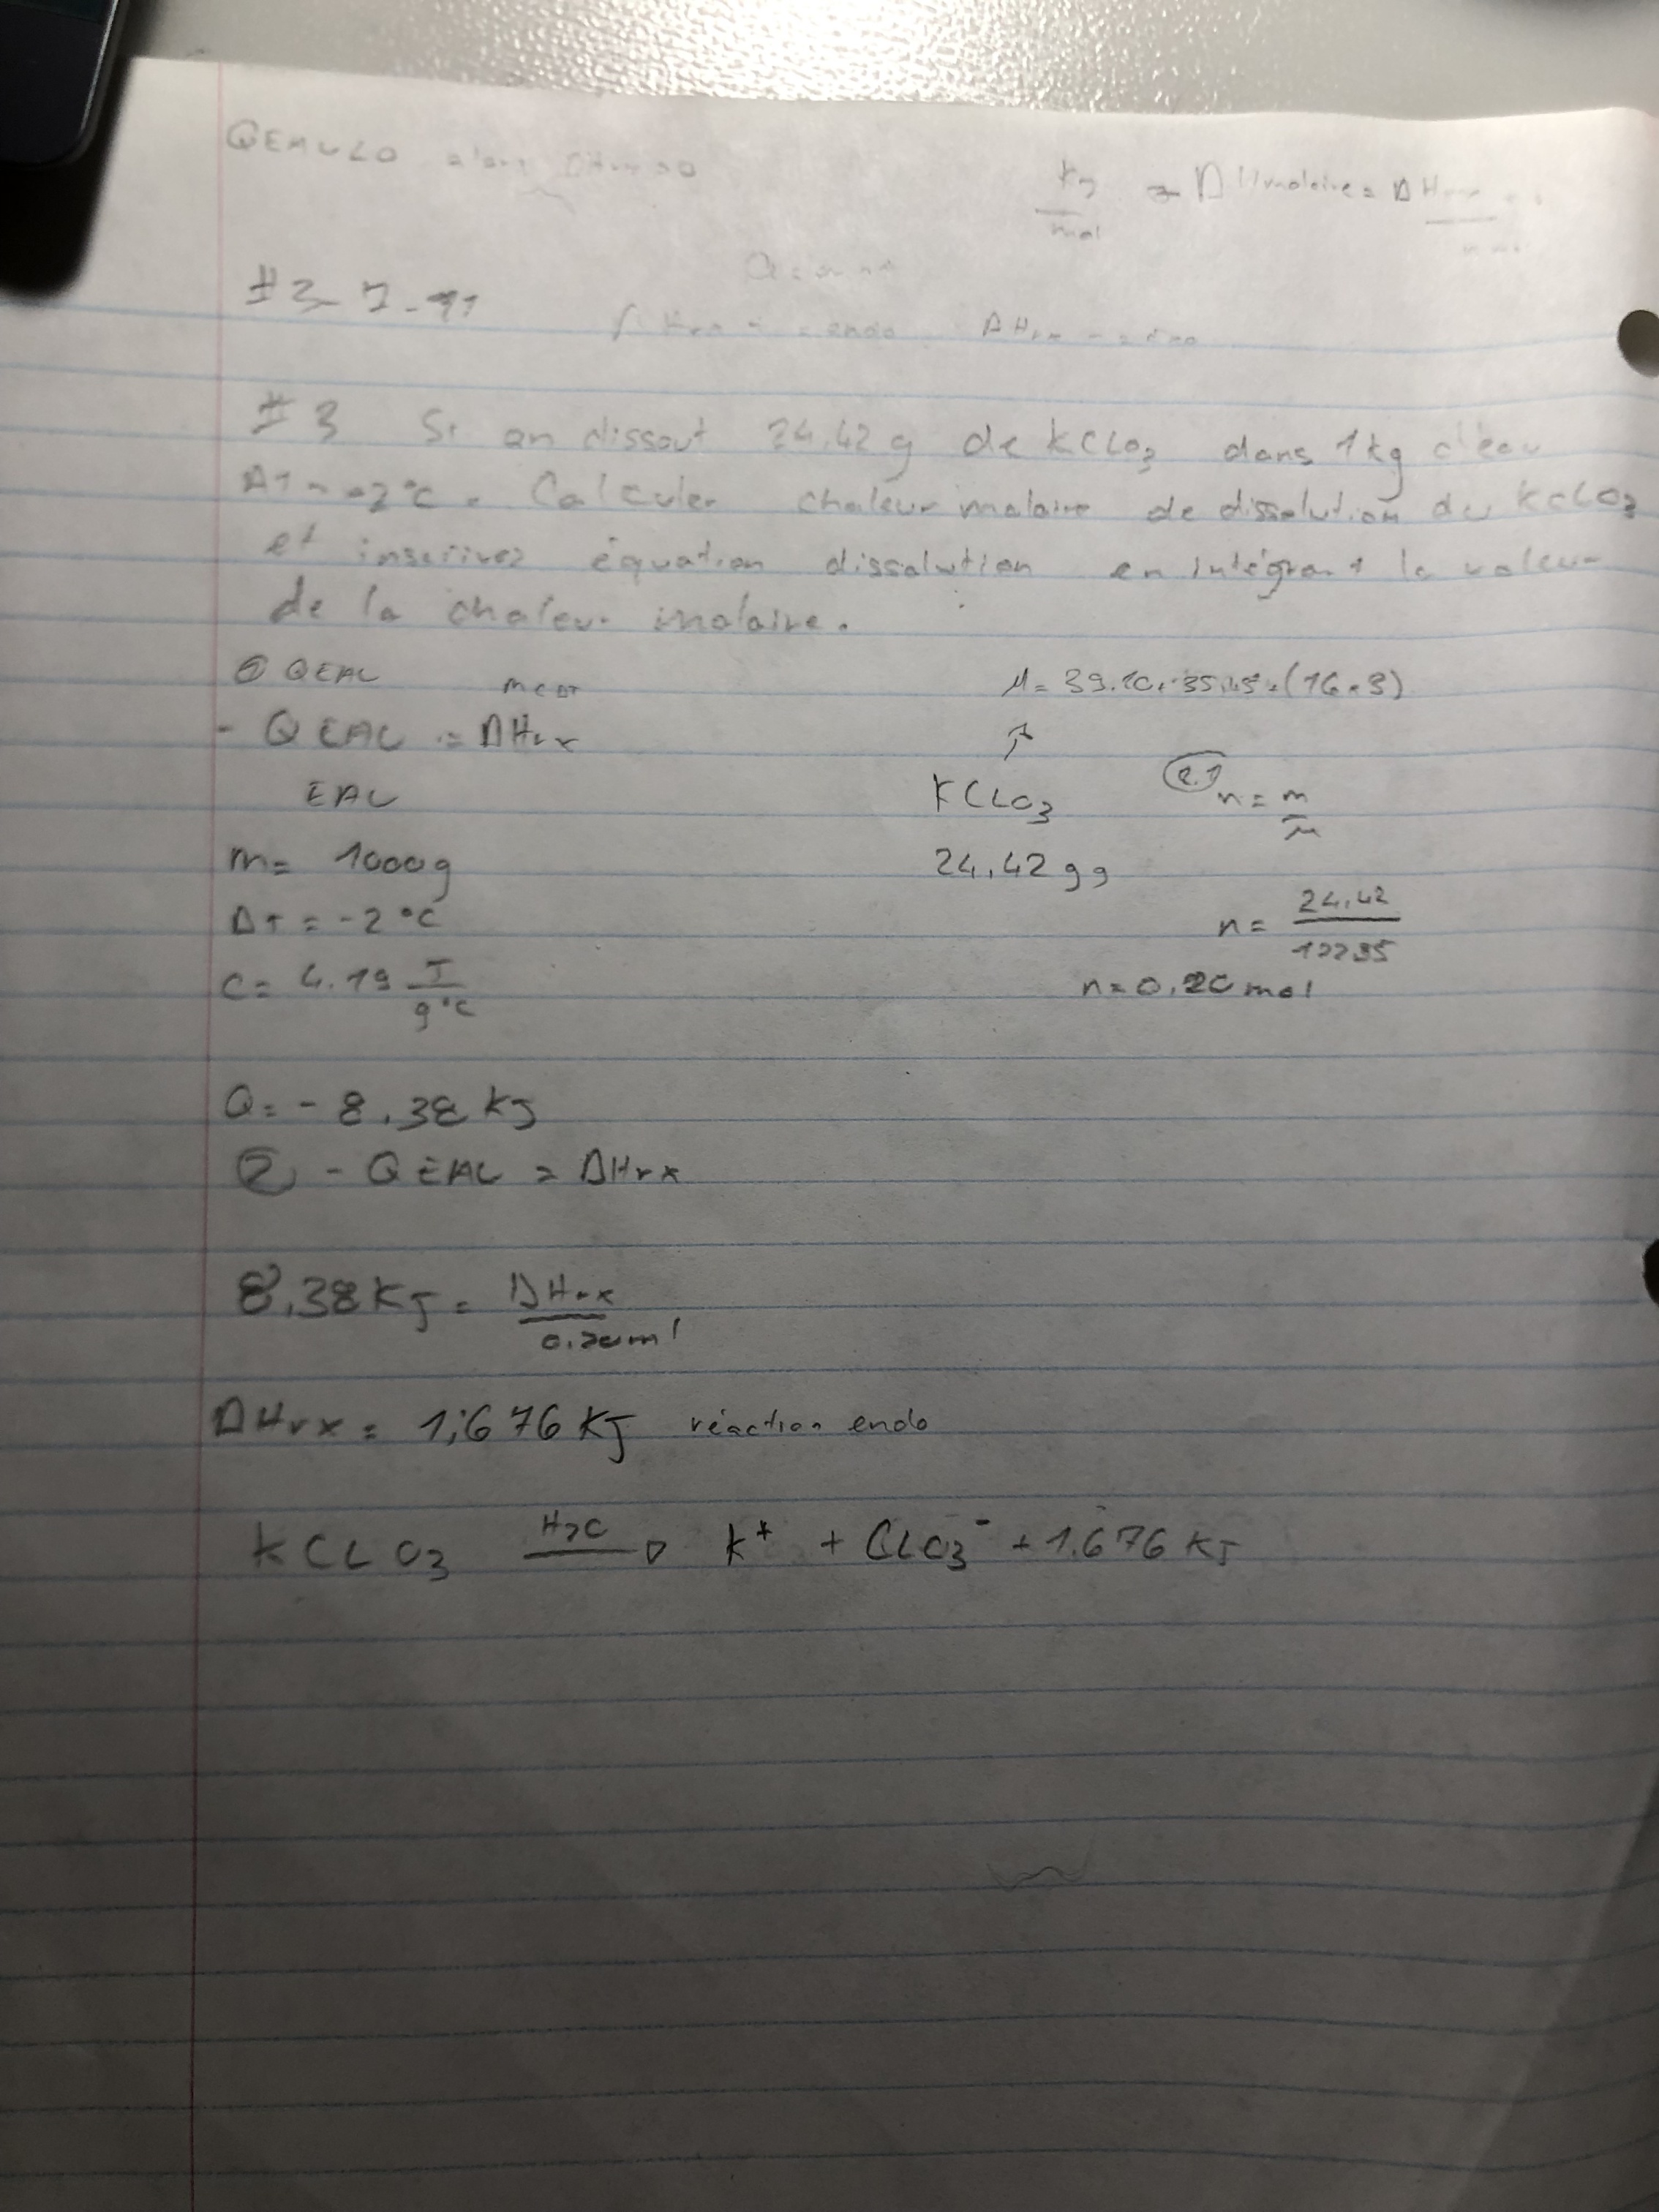 QEAU<0 alors ΔHrx>0
KJ/mol → ΔHmolaire = ΔH
#3-7-11
ΔHrx + = endo ΔHrx - = exo
#3 Si on dissout 24.42 g de KCLO3 dans 1kg d'eau
ΔT = -2°C. Calculer chaleur molaire de dissolution du KCLO3
et inscrivez équation dissolution en intégrant la valeur
de la chaleur molaire.
① QEAU mcΔT
- QEAU = ΔHrx
EAU
m= 1000g
ΔT = -2°C
C= 4.19 J/g°C
M= 39.10+35.45+(16×3)
↑
KCLO3
24.42 g g
2.1 n = m/M
n= 24.42/122.55
n=0.20 mol
Q=-8.38 KJ
② - QEAU = ΔHrx
8.38 KJ = ΔHrx/0.20mol
ΔHrx = 1,676 KJ réaction endo
KCLO3 H2O → K⁺ + CLO3⁻ + 1.676 KJ